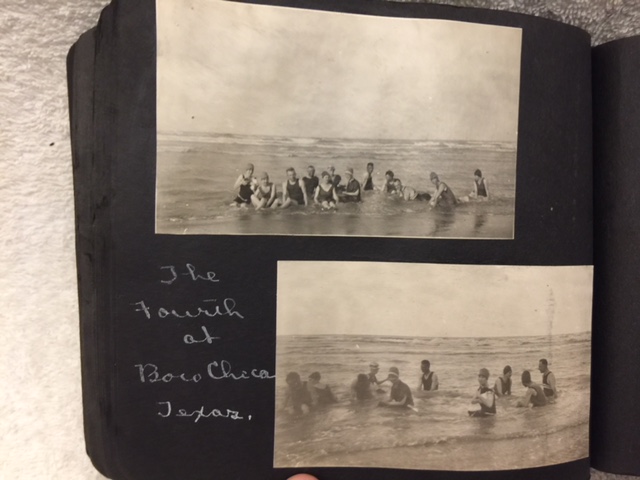 The
Fourth
at
Boco Chica
Texas.